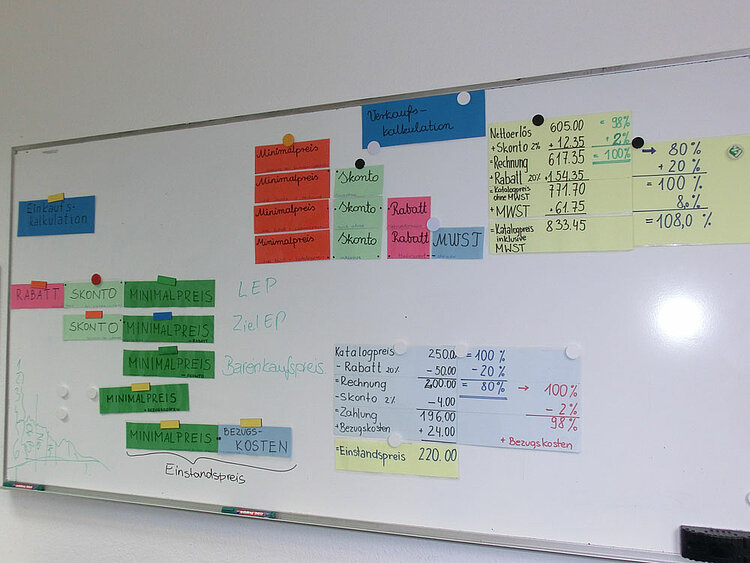 Verkaufs-
kalkulation
Nettoerlös 605.00 = 98%
+ Skonto 2% + 12.35 + 2%
= Rechnung 617.35 = 100% → 80%
+ Rabatt 20% + 154.35 + 20%
= Katalogpreis ohne MWST 771.70 = 100%
+ MWST + 61.75 8,0%
= Katalogpreis inklusive MWST 833.45 = 108,0%
Minimalpreis
Minimalpreis Skonto
Minimalpreis Skonto Rabatt
Minimalpreis Skonto Rabatt MWST
Einkaufs-
kalkulation
RABATT SKONTO MINIMALPREIS LEP
SKONTO MINIMALPREIS Ziel EP
MINIMALPREIS Bareinkaufspreis
MINIMALPREIS
MINIMALPREIS BEZUGS-
KOSTEN
Einstandspreis
Katalogpreis 250.00 = 100%
- Rabatt 20% - 50.00 - 20%
= Rechnung 200.00 = 80% → 100%
- Skonto 2% - 4.00 - 2%
= Zahlung 196.00 98%
+ Bezugskosten + 24.00 + Bezugskosten
= Einstandspreis 220.00